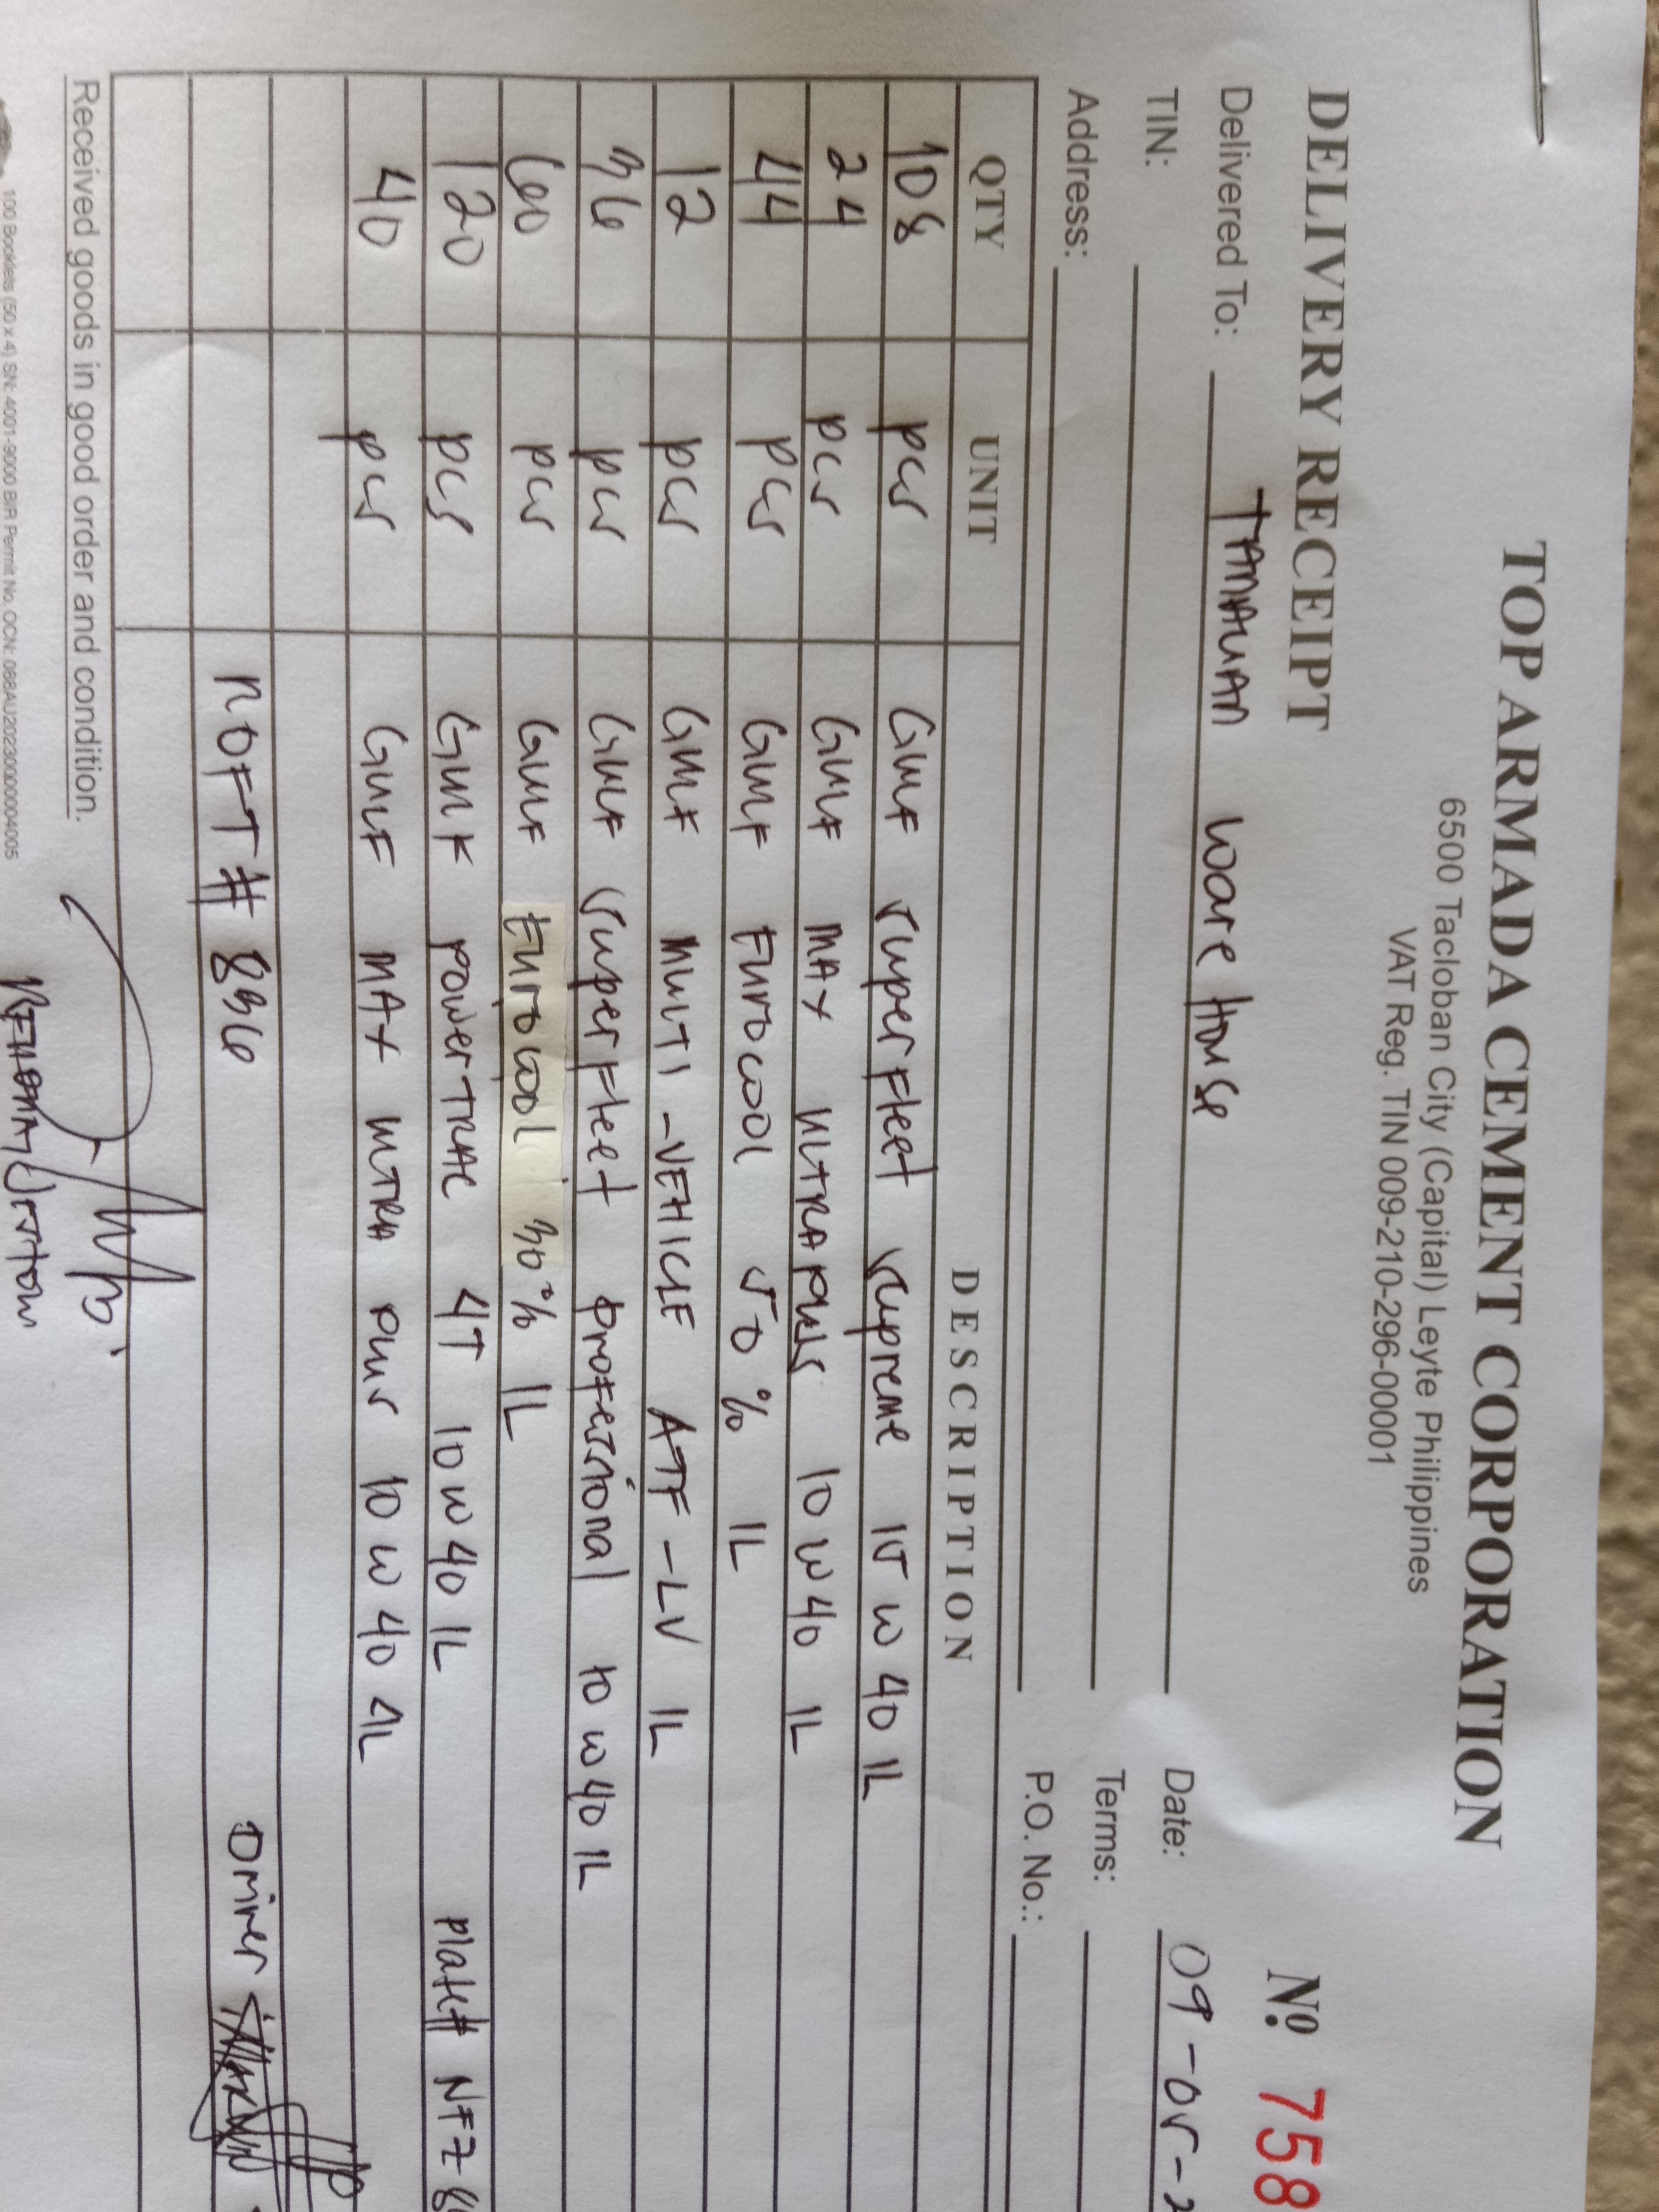 TOP ARMADA CEMENT CORPORATION
6500 Tacloban City (Capital) Leyte Philippines
VAT Reg. TIN 009-210-296-00001
DELIVERY RECEIPT Nº 758
Delivered To: TANAUAN Ware House Date: 09-05-2
TIN: Terms:
Address: P.O. No.:
QTY UNIT DESCRIPTION
108 pcs GMF superFleet supreme 15 W 40 1L
24 pcs GMF MAX ULTRA PLUS 10 W 40 1L
44 pcs GMF Eurocool 50 % 1L
12 pcs GMF MULTI-VEHICLE ATF-LV 1L
36 pcs GMF superFleet professional 10 W 40 1L
60 pcs GMF Eurocool 30 % 1L
120 pcs GMF powerTRAC 4T 10 W 40 1L plate# NFZ 8
40 pcs GMF MAX ULTRA PLUS 10 W 40 4L
NOFT # 836 Driver
Received goods in good order and condition.
100 Booklets (50 x 4) SN: 4001-9000 BIR Permit No. OCN: 088AU20230000004005